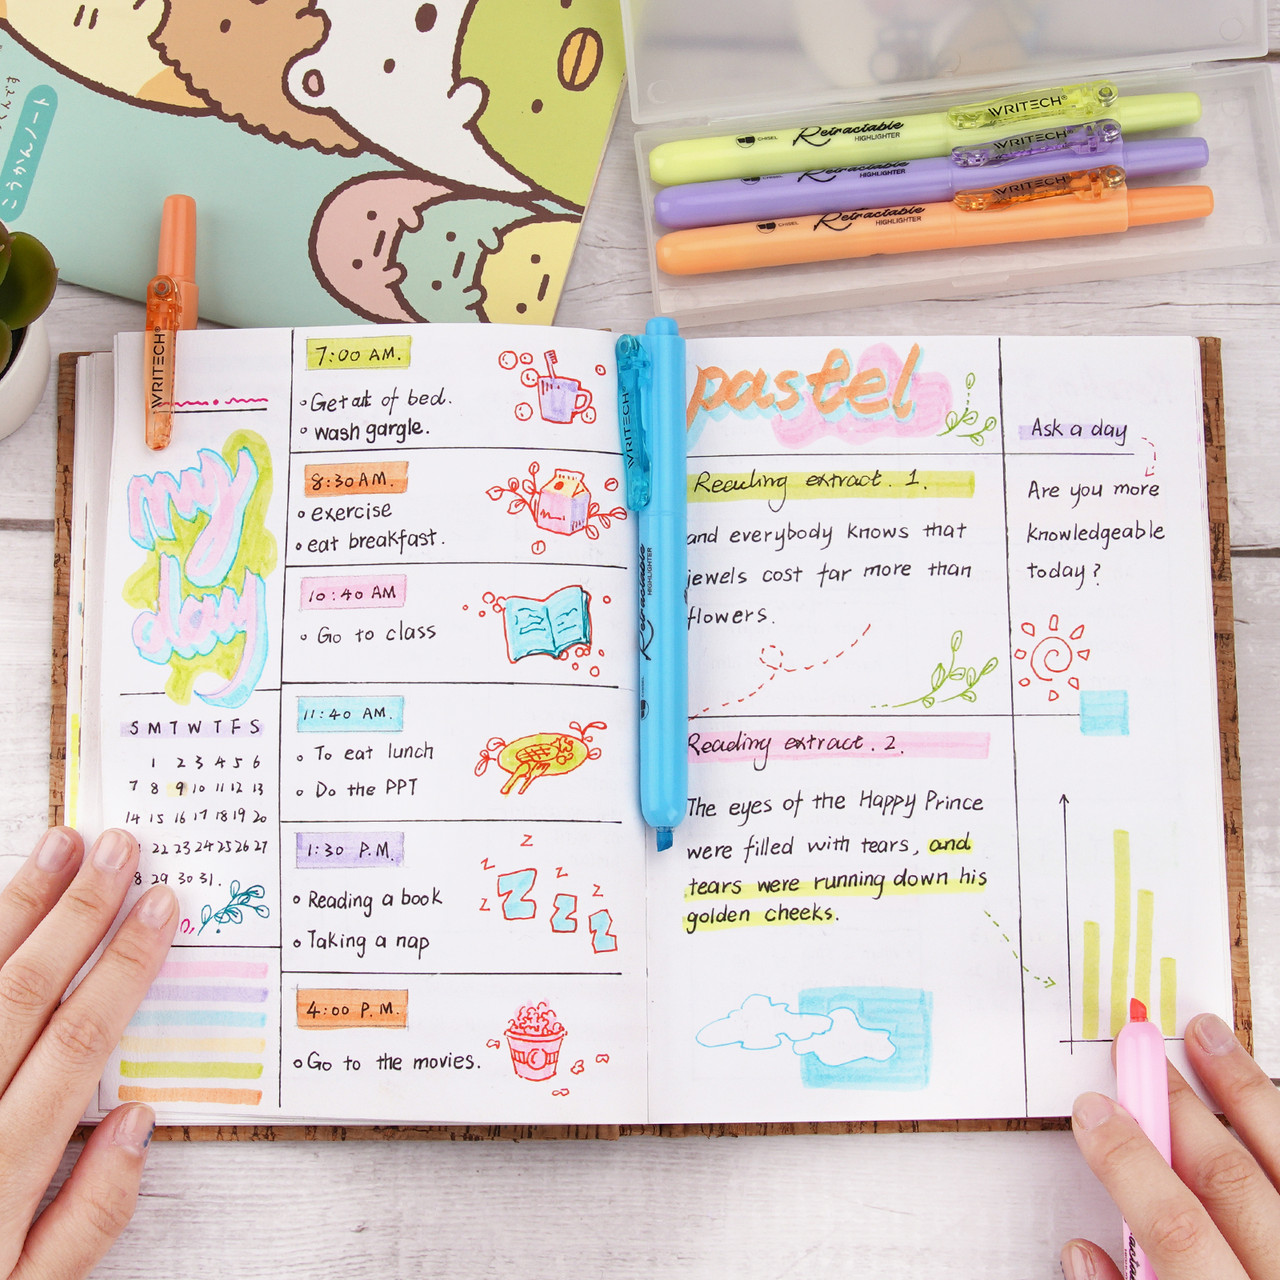 こうかんノート
WRITECH®
CHISEL Retractable HIGHLIGHTER
WRITECH®
CHISEL Retractable HIGHLIGHTER
WRITECH®
CHISEL Retractable HIGHLIGHTER
WRITECH®
WRITECH®
Retractable HIGHLIGHTER
my
day
S M T W T F S
1 2 3 4 5 6
7 8 9 10 11 12 13
14 15 16 17 18 19 20
22 23 24 25 26 27
8 29 30 31.
7:00 AM.
Get out of bed.
wash gargle.
8:30 AM.
exercise
eat breakfast.
10:40 AM
Go to class
11:40 AM.
To eat lunch
Do the PPT
1:30 P.M.
Reading a book
Taking a nap
Z
Z
Z
Z
Z
Z
Z
Z
4:00 P.M.
Go to the movies.
pastel
Reading extract. 1.
and everybody knows that
jewels cost far more than
flowers.
Reading extract. 2.
The eyes of the Happy Prince
were filled with tears, and
tears were running down his
golden cheeks.
Ask a day
Are you more
knowledgeable
today?